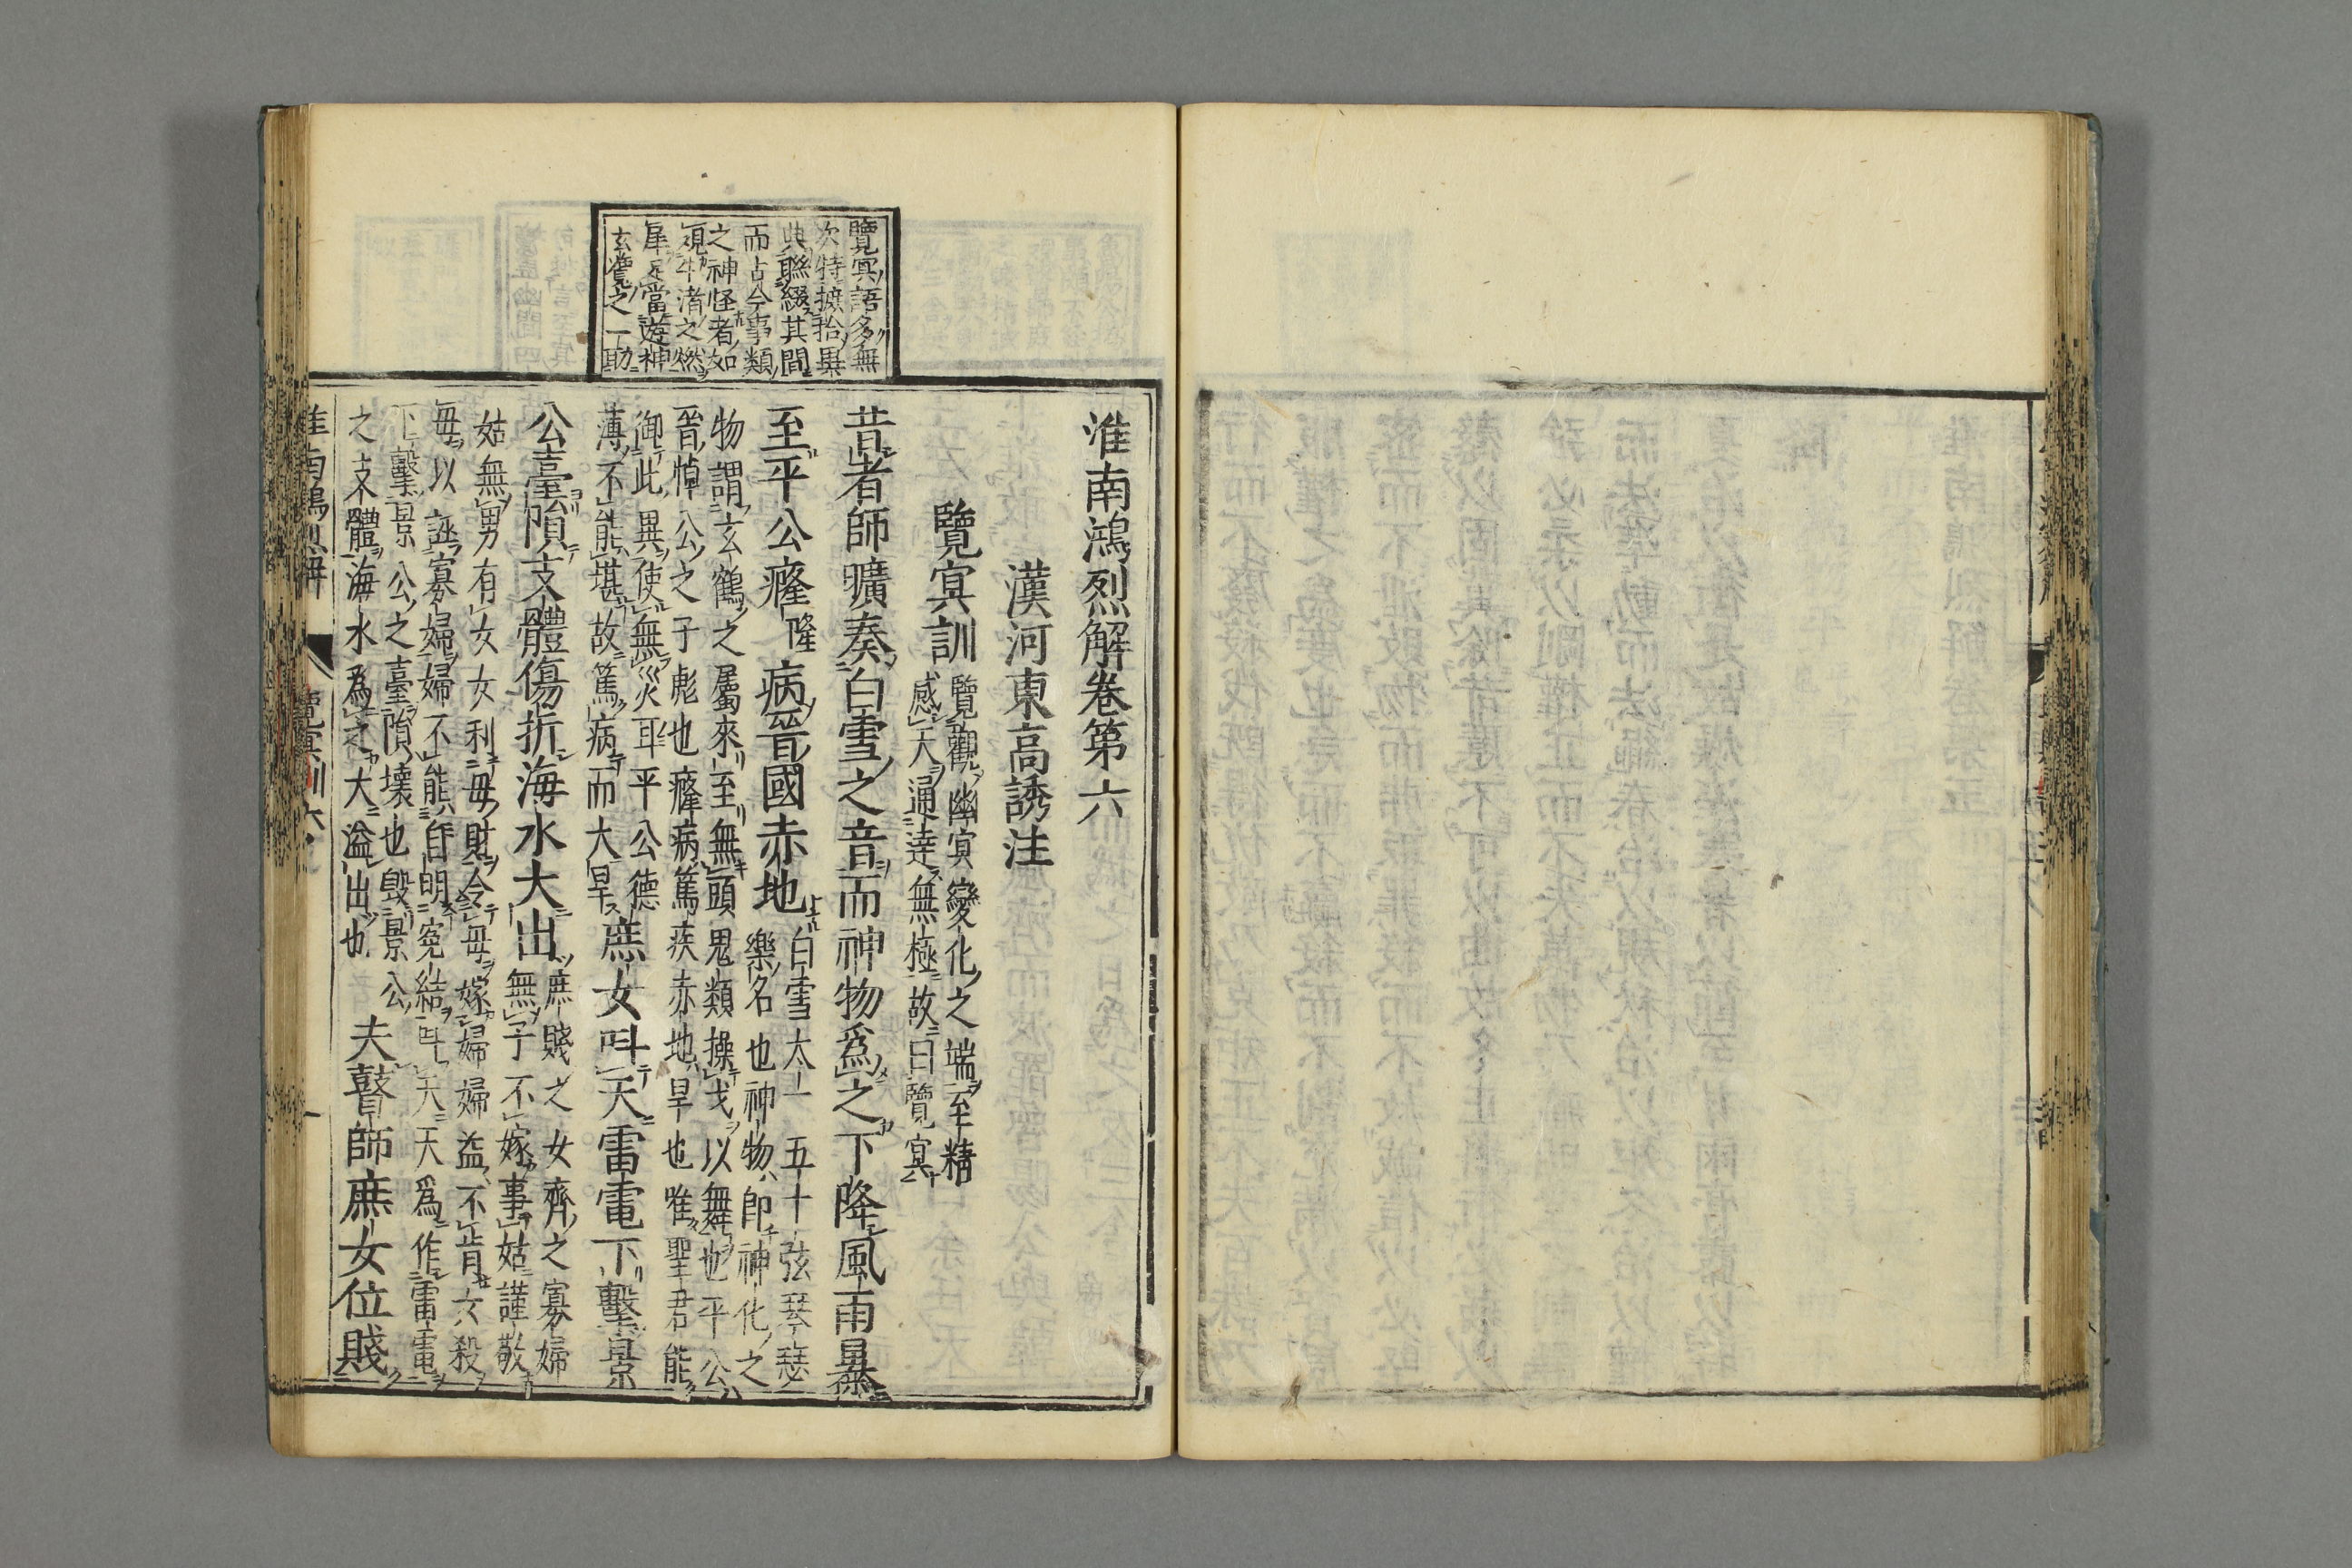 覽冥語多無
次特摭拾異
典聯綴其間
而古今事類
之神怪者如
視牛渚之燃
犀足當遊神
玄覽之一助
淮南鴻烈解卷第六
漢河東高誘注
覽冥訓
覽觀幽冥變化之端至精
感天通達無極故曰覽冥
昔者師曠奏白雪之音而神物爲之下降風雨暴
至平公癃隆病晉國赤地
白雪太一五十弦琴瑟
樂名也神物即神化之
物謂玄鶴之屬來至無頭鬼類操戈以舞也平公
晉悼公之子彪也癃病篤疾赤地旱也唯聖君能
御此異使無災耳平公德
薄不能堪故篤病而大旱
庶女呌天雷電下擊景
公臺隕支體傷折海水大出
庶賤之女齊之寡婦
無子不嫁事姑謹敬
姑無男有女女利母財令母嫁婦婦益不肯女殺
母以誣寡婦婦不能自明寃結呌天天爲作雷電
下擊景公之臺隕壊也毀景公
之支體海水爲之大溢出也
夫瞽師庶女位賤
淮南鴻烈解
覽冥訓六
一